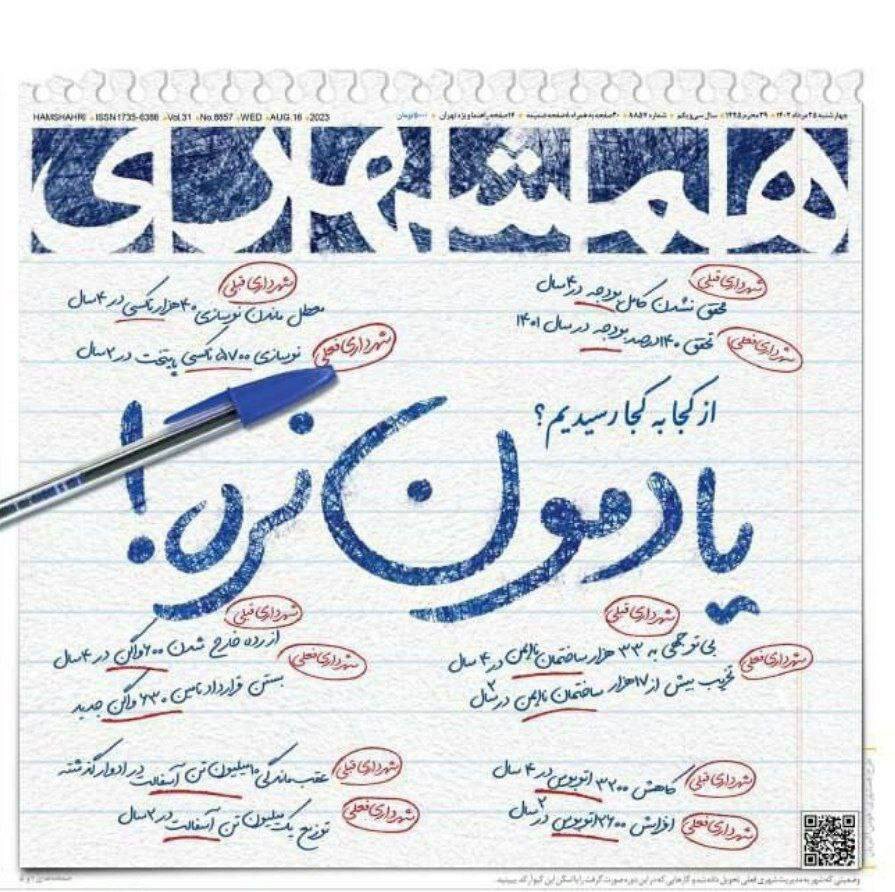 HAMSHAHRI ISSN 1735-6386 Vol.31 No.8857 WED AUG.16 2023
چهارشنبه ۲۵ مرداد ۱۴۰۲ ۲۹ محرم ۱۴۴۵ سال سی‌ویکم شماره ۸۸۵۷ ۲۰صفحه به همراه ۸صفحه ضمیمه ۱۶صفحه راهنما ویژه تهران ۵۰۰۰تومان
همشهری
شهرداری قبلی
محقق نشدن کامل بودجه در ۴سال
شهرداری فعلی
تحقق ۱۴۰درصد بودجه در سال ۱۴۰۱
شهرداری قبلی
معطل ماندن نوسازی ۴۰هزار تاکسی در ۴سال
شهرداری فعلی
نوسازی ۵۷۰۰ تاکسی پایتخت در ۲سال
از کجا به کجا رسیدیم؟
یادمون نره!
شهرداری قبلی
بی‌توجهی به ۳۳ هزار ساختمان ناایمن در ۴ سال
شهرداری فعلی
تخریب بیش از ۱۷هزار ساختمان ناایمن در ۲ سال
شهرداری قبلی
از رده خارج شدن ۶۰۰واگن در ۴سال
شهرداری فعلی
بستن قرارداد تامین ۶۳۰ واگن جدید
شهرداری قبلی
کاهش ۳۲۰۰ اتوبوس در ۴ سال
شهرداری فعلی
افزایش ۲۶۰۰اتوبوس در ۲سال
شهرداری قبلی
عقب‌ماندگی ۱۰میلیون تن آسفالت در ادوار گذشته
شهرداری فعلی
توزیع یک میلیون تن آسفالت در ۲سال
وضعیتی که شهر به مدیریت شهری فعلی تحویل داده شد و کارهایی که در این دوره صورت گرفت را با اسکن این کیوآر کد ببینید.